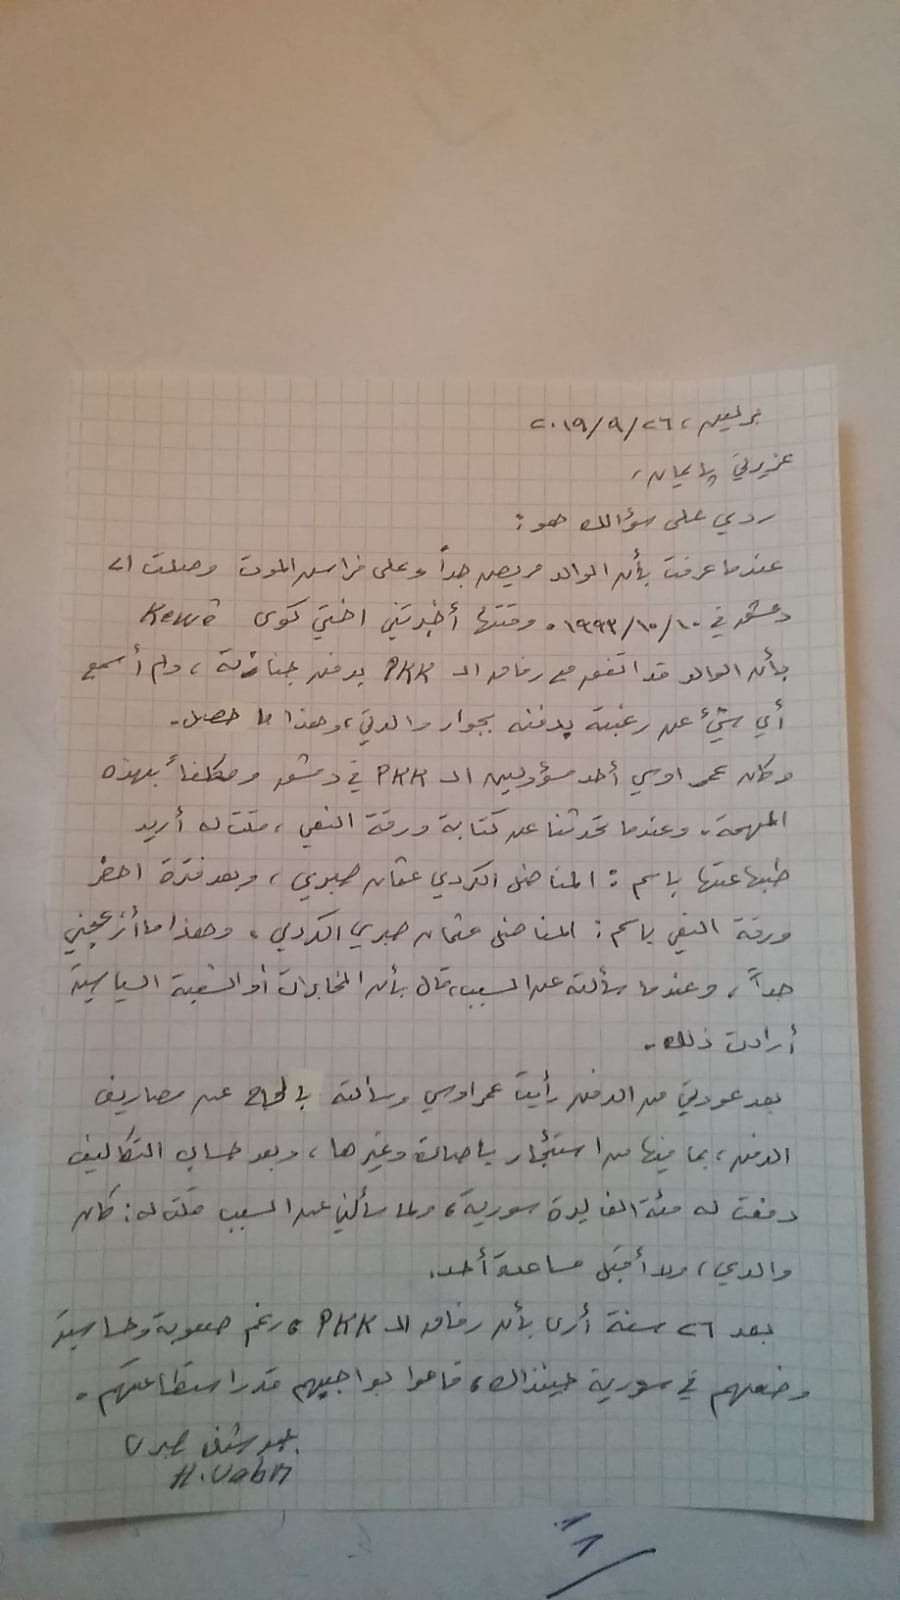 برلين، ٢٦/٩/٢٠١٩
عزيزتي پاليمان،
ردي على سؤالك هو:
عندما عرفت بأن الوالد مريض جداً وعلى فراس الموت وصلت الى
دمشق في ١٠/١٠/١٩٩٣. وقتها أخبرتني اختي كوى Kewê
بأن الوالد قد اتفق مع رفاق الـ PKK بدفن جنازته، ولم أسمع
أي شيء عن رغبته بدفنه بجوار والدتي، وهذا ما حصل.
وكان عمر اوسي أحد مسؤولين الـ PKK في دمشق ومكلفاً بهذه
المهمة. وعندما تحدثنا عن كتابة ورقة النعي، قلت له أريد
طباعتها باسم: المناضل الكردي عثمان صبري، وبعد فترة احضر
ورقة النعي باسم: المناضل عثمان صبري الكردي. وهذا ما أزعجني
جداً، وعندما سألته عن السبب، قال بأن المخابرات أو الشعبة السياسية
أرادت ذلك.
بعد عودتي من الدفن رأيت عمر اوسي وسألته بالحاح عن مصاريف
الدفن، بما فيها من استئجار باصات وغيرها، وبعد حساب التكاليف
دفعت له مئة الف ليرة سورية، ولما سألني عن السبب قلت له: كان
والدي، ولا أقبل مساعدة أحد.
بعد ٢٦ سنة أرى بأن رفاق الـ PKK، رغم صعوبة وحساسية
وضعهم في سورية حينذاك، قاموا بواجبهم قدر استطاعتهم.
هوشنك صبري